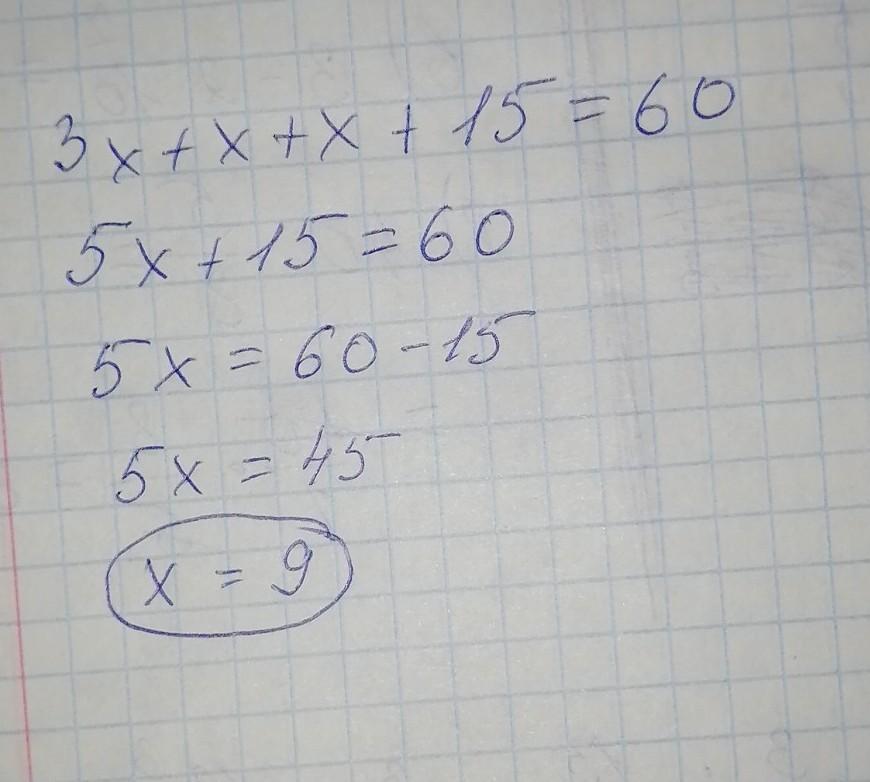 3x + x + x + 15 = 60
5x + 15 = 60
5x = 60 - 15
5x = 45
x = 9